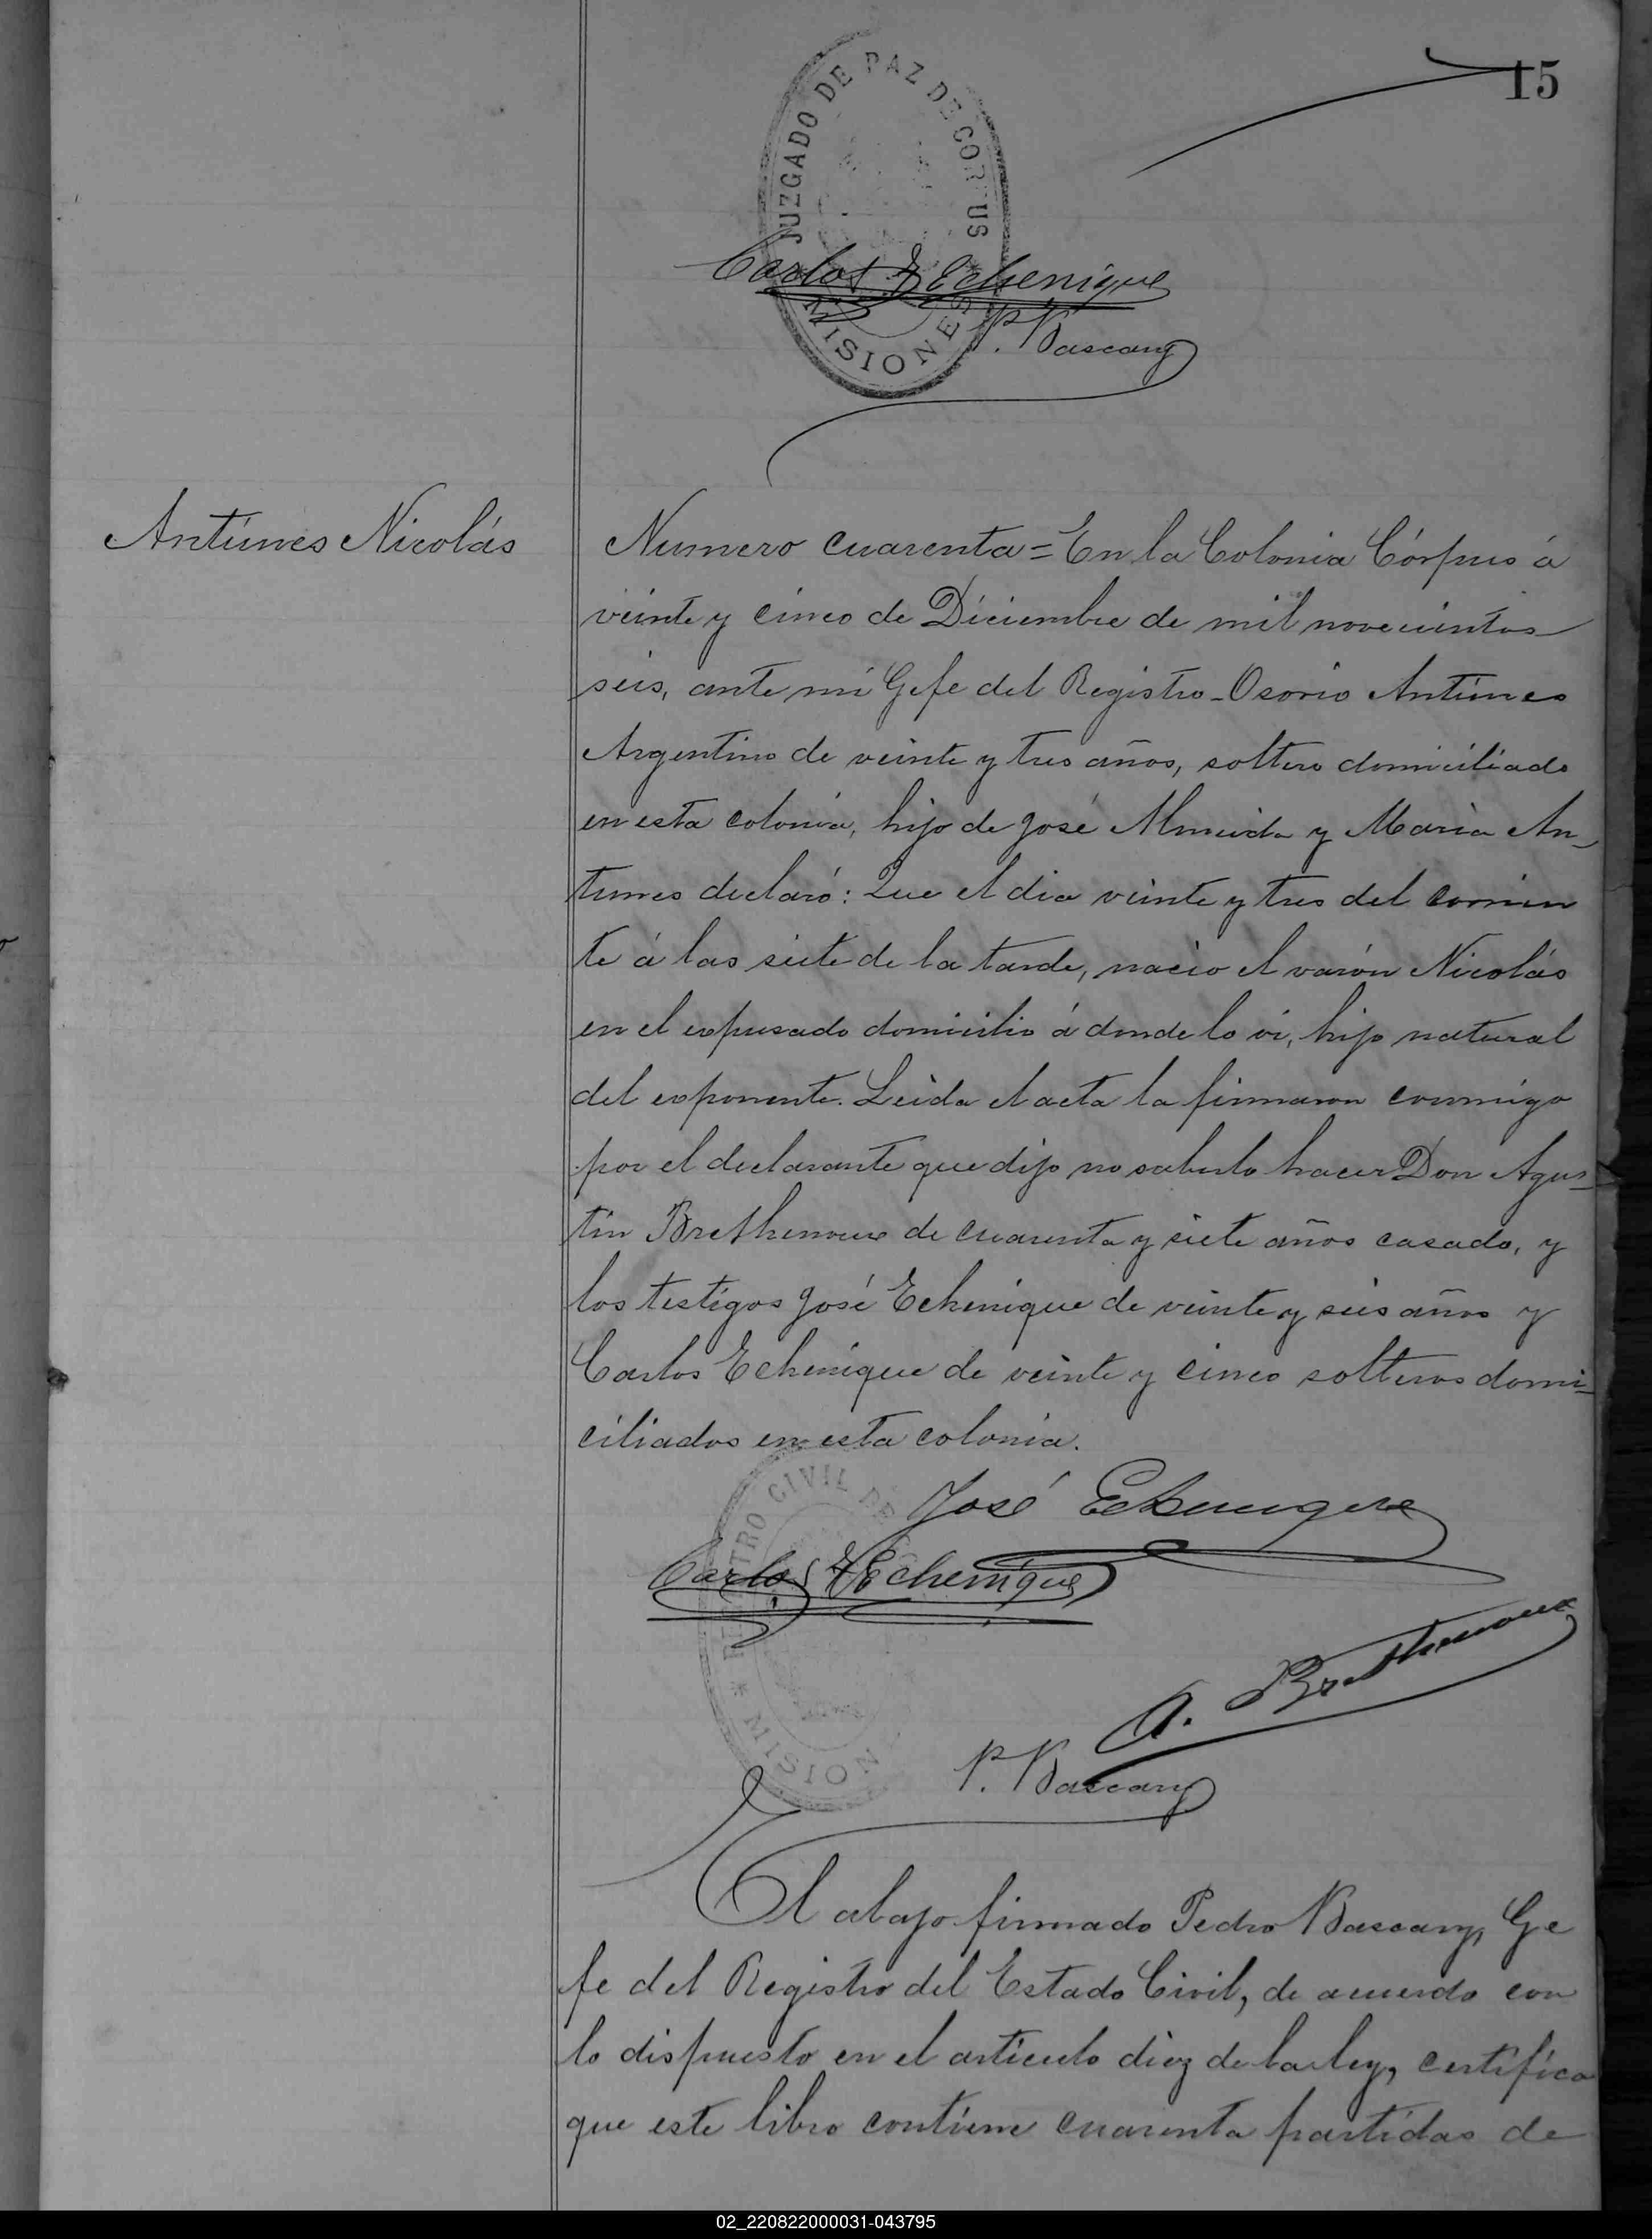 15
JUZGADO DE PAZ DE CORPUS
MISIONES
Carlos Echenique
P. Bascary
Antúnes Nicolás
Numero cuarenta = En la Colonia Córpus á
veinte y cinco de Diciembre de mil novecientos
seis, ante mi Gefe del Registro - Osorio Antúnes
Argentino de veinte y tres años, soltero domiciliado
en esta colonia, hijo de José Almeida y Maria An-
tunes declaró: Que el dia veinte y tres del corrien
te á las siete de la tarde, nació el varón Nicolás
en el expresado domicilio á donde lo vi, hijo natural
del exponente. Leida el acta la firmaron conmigo
por el declarante que dijo no saberlo hacer Don Agus-
tin Brethenoux de cuarenta y siete años casado, y
los testigos José Echenique de veinte y seis años y
Carlos Echenique de veinte y cinco solteros domi-
ciliados en esta colonia.
REGISTRO CIVIL DE
MISION
José Echenique
Carlos Echenique
A. Brethenoux
P. Bascary
El abajo firmado Pedro Bascary, Ge
fe del Registro del Estado Civil, de acuerdo con
lo dispuesto en el articulo diez de la ley, certifica
que este libro contiene cuarenta partidas de
02_220822000031-043795